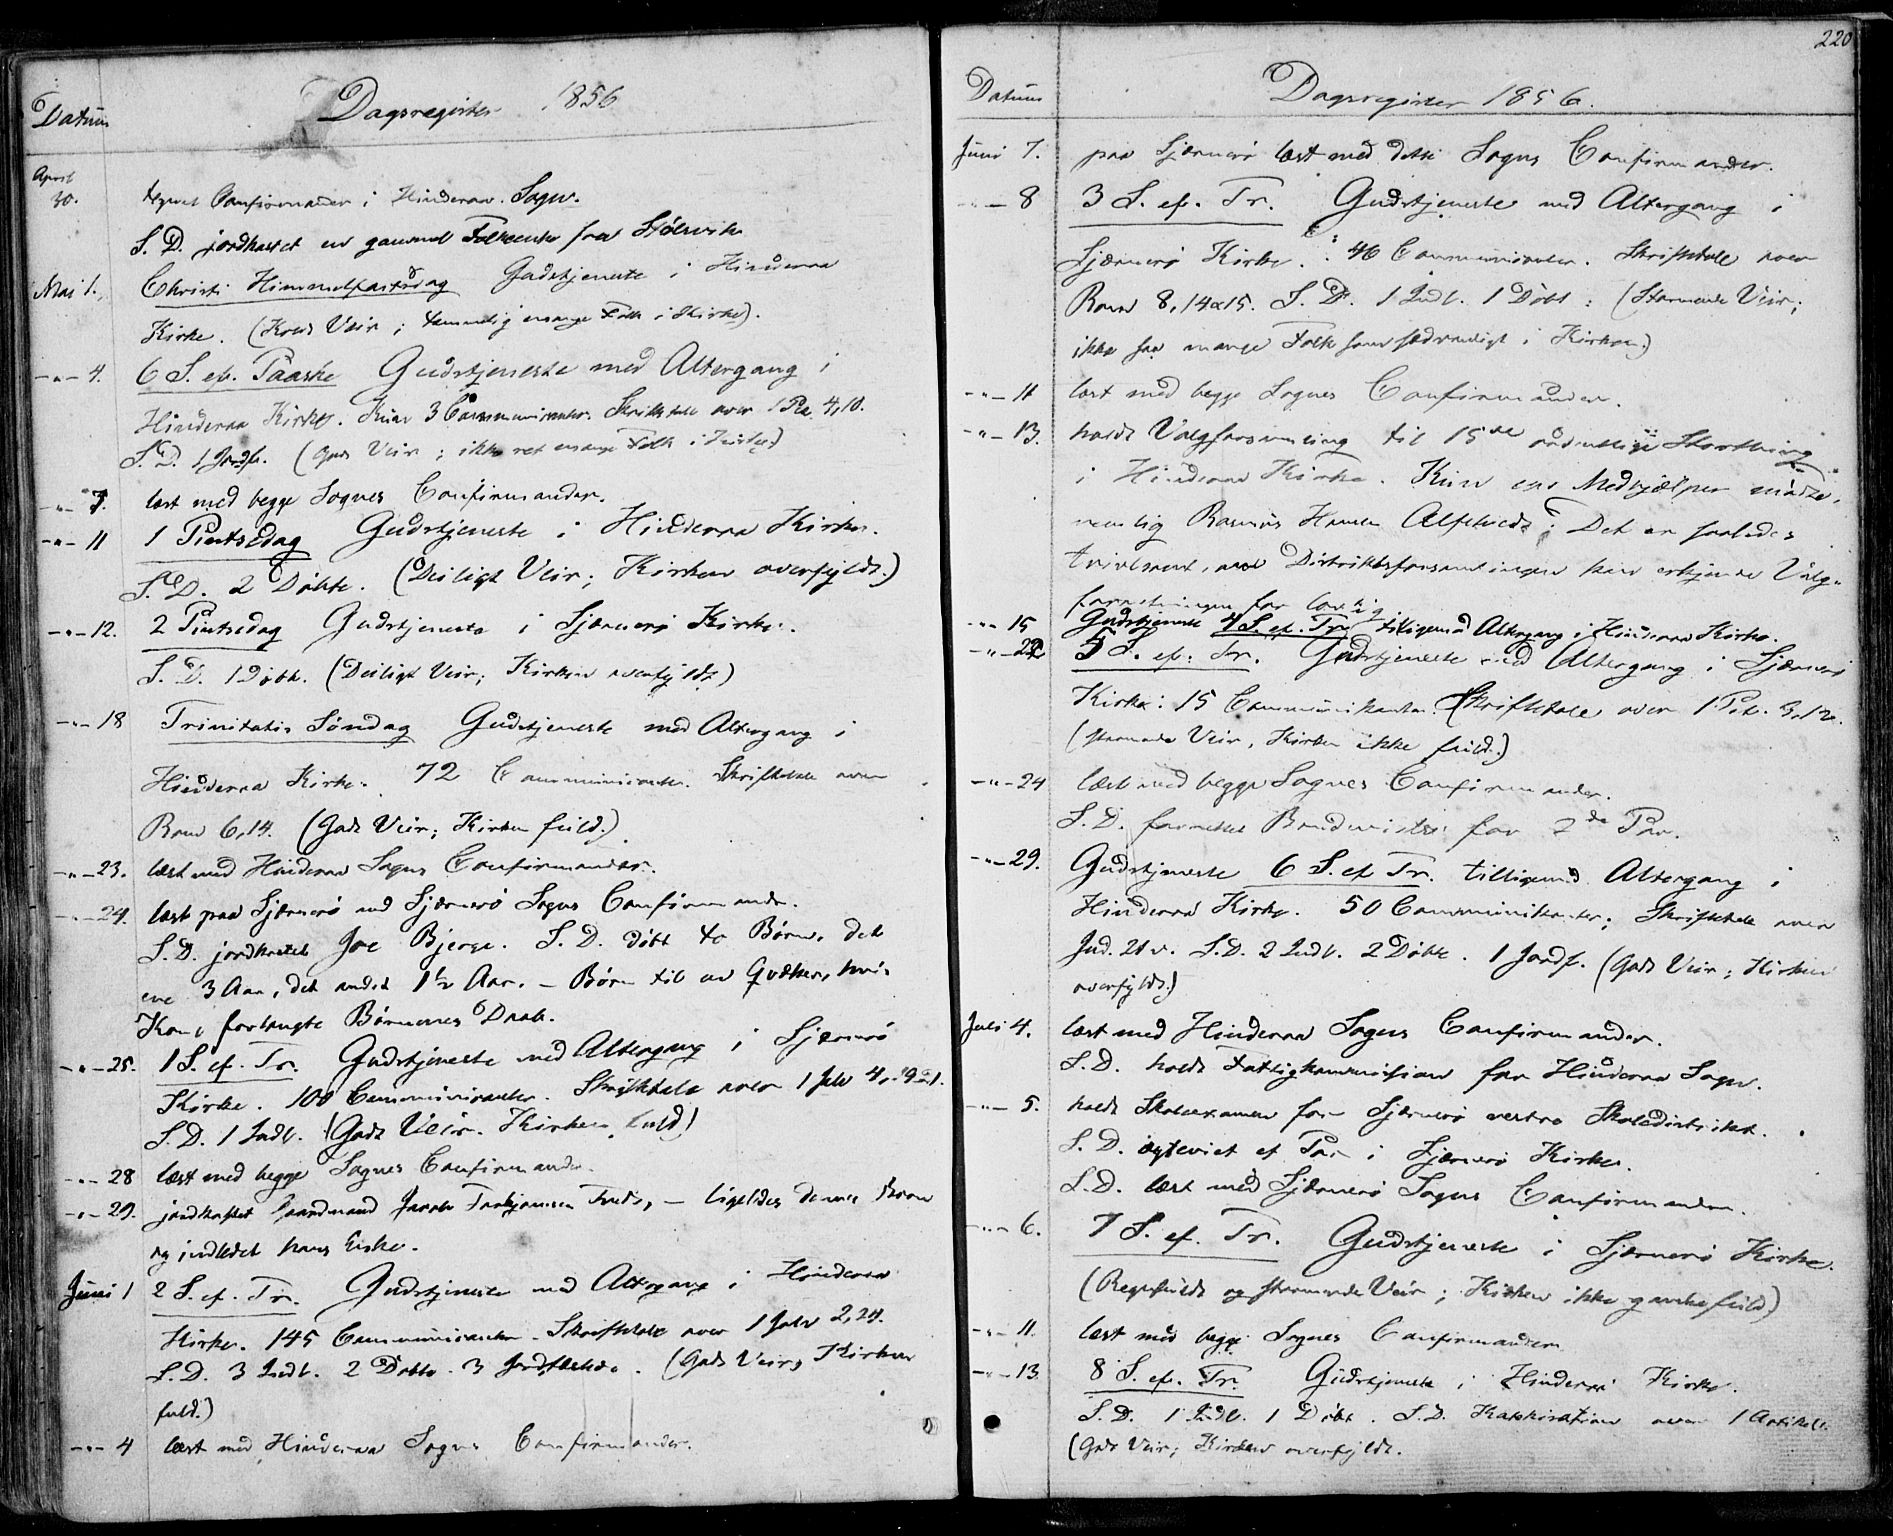 Datum
Dagsregister 1856
April
30. Confirmander i Hinderaa Sogn.
S. D. jordkastet en gammel fra Stølsvik
Mai 1. Christi Himmelfartsdag Gudstjeneste i Hinderaa
Kirke. (Kold Veir; temmelig mange Folk i Kirke).
-"- 4. 6 S. ef. Paaske Gudstjeneste med Altergang i
Hinderaa Kirke. Kun 3 Communicanter. Skriftetale over 1 Pet. 4,10.
S. D. 1 Jordf. (Godt Veir; ikke ret mange Folk i Kirke)
-"- 7. læst med begge Sognes Confirmander.
-"- 11 1 Pintsedag Gudstjeneste i Hinderaa Kirke.
S. D. 2 Døbte. (Deiligt Veir; Kirken overfyldt.)
-"- 12. 2 Pintsedag Gudstjeneste i Sjærnerø Kirke.
S. D. 1 Døbt. (Deiligt Veir; Kirken overfyldt)
-"- 18 Trinitatis Søndag Gudstjeneste med Altergang i
Hinderaa Kirke. 72 Communicanter. Skriftetale over
Rom 6,14. (Godt Veir; Kirken fuld.)
-"- 23. læst med Hinderaa Sogns Confirmander.
-"- 24. læst paa Sjærnerø med Sjærnerø Sogns Confirmander.
S. D. jordkastet Joe Bjerge. S. D. døbt to Børn, det
ene 3 Aar, det andet 1½ Aar. - Børn til en Qvæker, hvis
Kone forlangte Børnenes Daab.
-"- 25. 1 S. ef. Tr. Gudstjeneste med Altergang i Sjærnerø
Kirke. 100 Communicanter. Skriftetale over 1 Joh 4, 19-21.
S. D. 1 Indl. (Godt Veir. Kirken fuld)
-"- 28 læst med begge Sognes Confirmander.
-"- 29. jordkastet Gaardmand Jacob Torbjørnsen Tveds, - ligeledes dennes Barn
og indledet hans Enke.
Juni 1 2 S. ef. Tr. Gudstjeneste med Altergang i Hinderaa
Kirke. 145 Communicanter. Skriftetale over 1 Joh 2,24.
S. D. 3 Indl. 2 Døbte. 3 Jordfæstede. (Godt Veir, Kirken
fuld.)
-"- 4 læst med Hinderaa Sogns Confirmander.
220
Datum
Dagsregister 1856.
Juni 7. paa Sjærnerø læst med dette Sogns Confirmander.
-"- 8 3 S. ef. Tr. Gudstjeneste med Altergang i
Sjærnerø Kirke. 46 Communicanter. Skriftetale over
Rom 8, 14 & 15. S. D. 1 Indl. 1 Døbt. (Stormende Veir;
ikke saa mange Folk som sædvanligt i Kirken.)
-"- 11 læst med begge Sognes Confirmander.
-"- 13. holdt Valgforsamling til 15de ordentlige Storthing
i Hinderaa Kirke. Kun en Medhjælper mødte,
nemlig Rasmus Hansen Det er saaledes
tvivlsomt, om Distriktsforsamlingen kan erkjende Valg-
forretningen for lovlig
-"- 15 Gudstjeneste 4 S. ef. Tr. tilligemed Altergang i Hinderaa Kirke.
-"- 22 5 S. ef. Tr. Gudstjeneste med Altergang i Sjærnerø
Kirke: 15 Communikanter. Skriftetale over 1 Pet. 3,12.
(stormende Veir, Kirken ikke fuld.)
-"- 24 læst med begge Sognes Confirmander.
S. D. forrettet Brudevielse for 2de Par.
-"- 29. Gudstjeneste 6 S. ef Tr. tilligemed Altergang i
Hinderaa Kirke. 50 Communikanter; Skriftetale over
Jud. 21 v. S. D. 2 Indl. 2 Døbte. 1 Jordf. (Godt Veir; Kirken
overfyldt.)
Juli 4. læst med Hinderaa Sogns Confirmander.
S. D. holdt Fattigkommission for Hinderaa Sogn.
-"- 5. holdt Skoleexamen for Sjærnerø vestre Skoledistrikt.
S. D. ægteviet et Par i Sjærnerø Kirke.
S. D. læst med Sjærnerø Sogns Confirmander.
-"- 6. 7 S. ef. Tr. Gudstjeneste i Sjærnerø Kirke.
(Regnfuldt og stormende Veir; Kirken ikke ganske fuld)
-"- 11. læst med begge Sognes Confirmander.
-"- 13. 8 S. ef. Tr. Gudstjeneste i Hinderaa Kirke.
S. D. 1 Indl. 1 Døbt. S. D. Katekisation over 1 Artikel.
(Godt Veir; Kirken overfyldt.